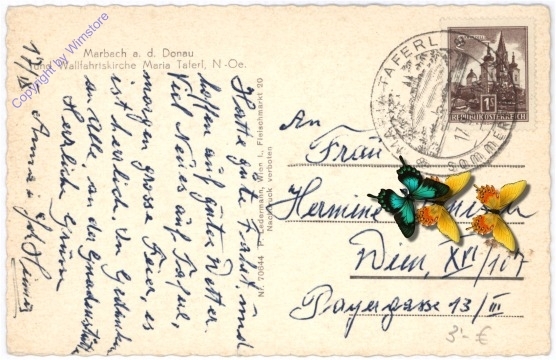 Marbach a. d. Donau
und Wallfahrtskirche Maria Taferl, N.-Oe.
17.
Hatte gute Fahrt, und
hoffen auf gutes Wetter.
Viel Neues auf Lager,
morgen grosse Feier, es
ist herrlich in Gedanken
an Alle an der Gnadenstätte
Herzliche Grüsse
Nr. 70644 P. Ledermann, Wien I., Fleischmarkt 20
Nachdruck verboten
MARIA TAFERL
SOMMER
17.
1 S
REPUBLIK ÖSTERREICH
An
Frau
Hermine
Wien, XVI/107
Payergasse 13/III
3.- €
Copyright by Wimstore